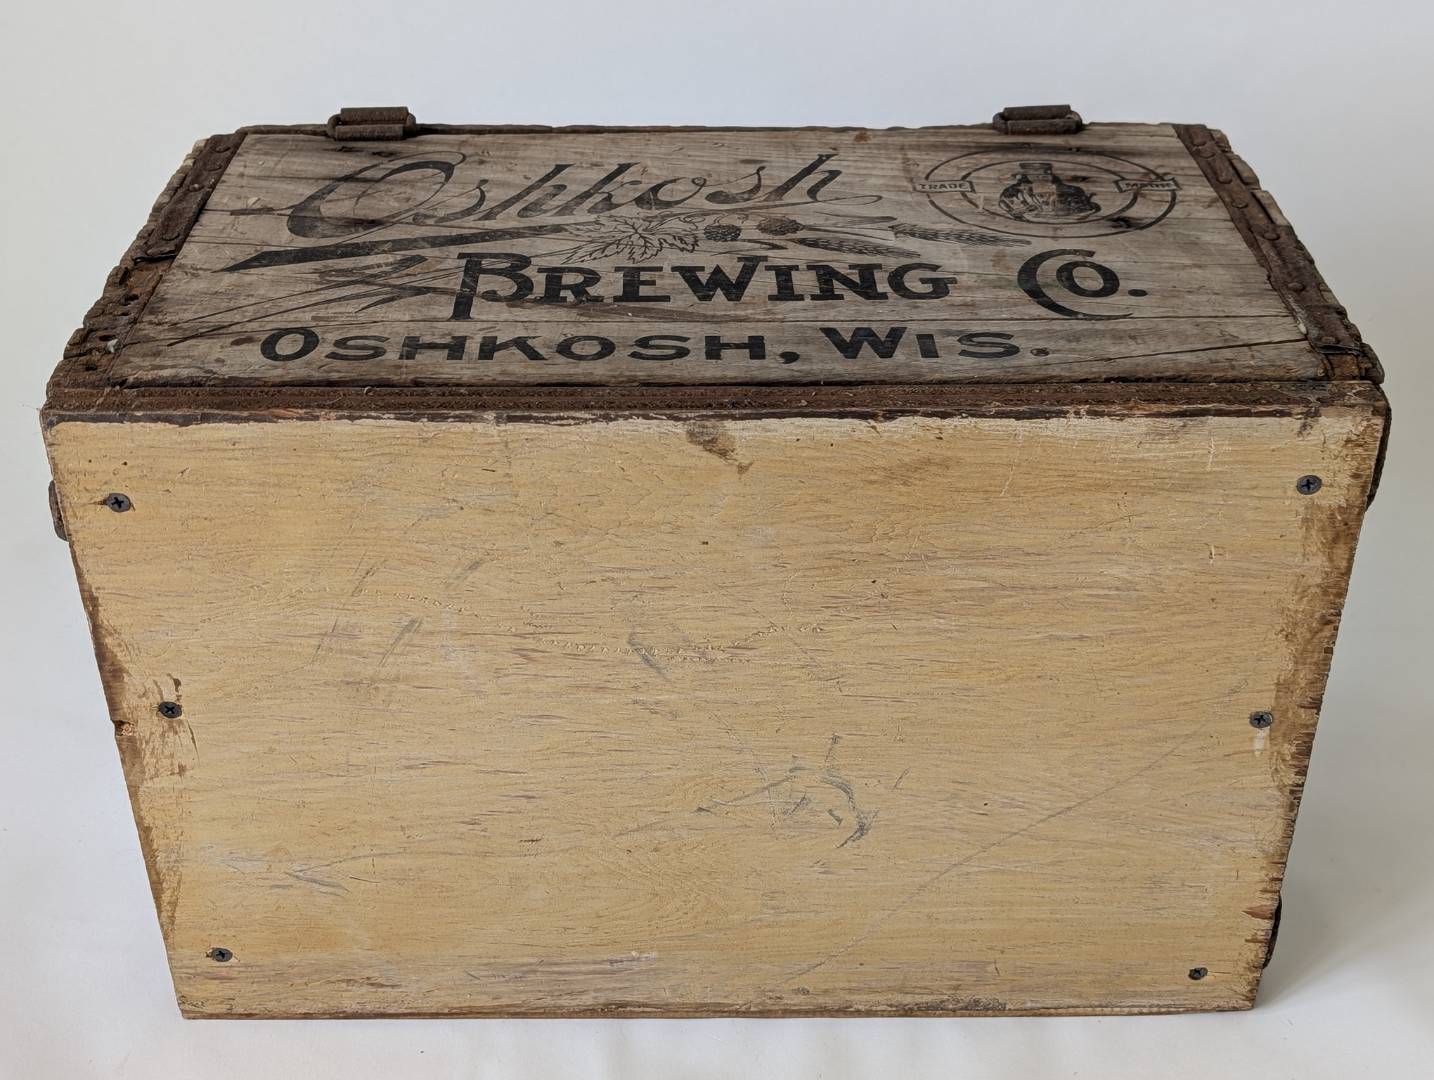 Oshkosh
TRADE MARK
BREWING CO.
OSHKOSH, WIS.